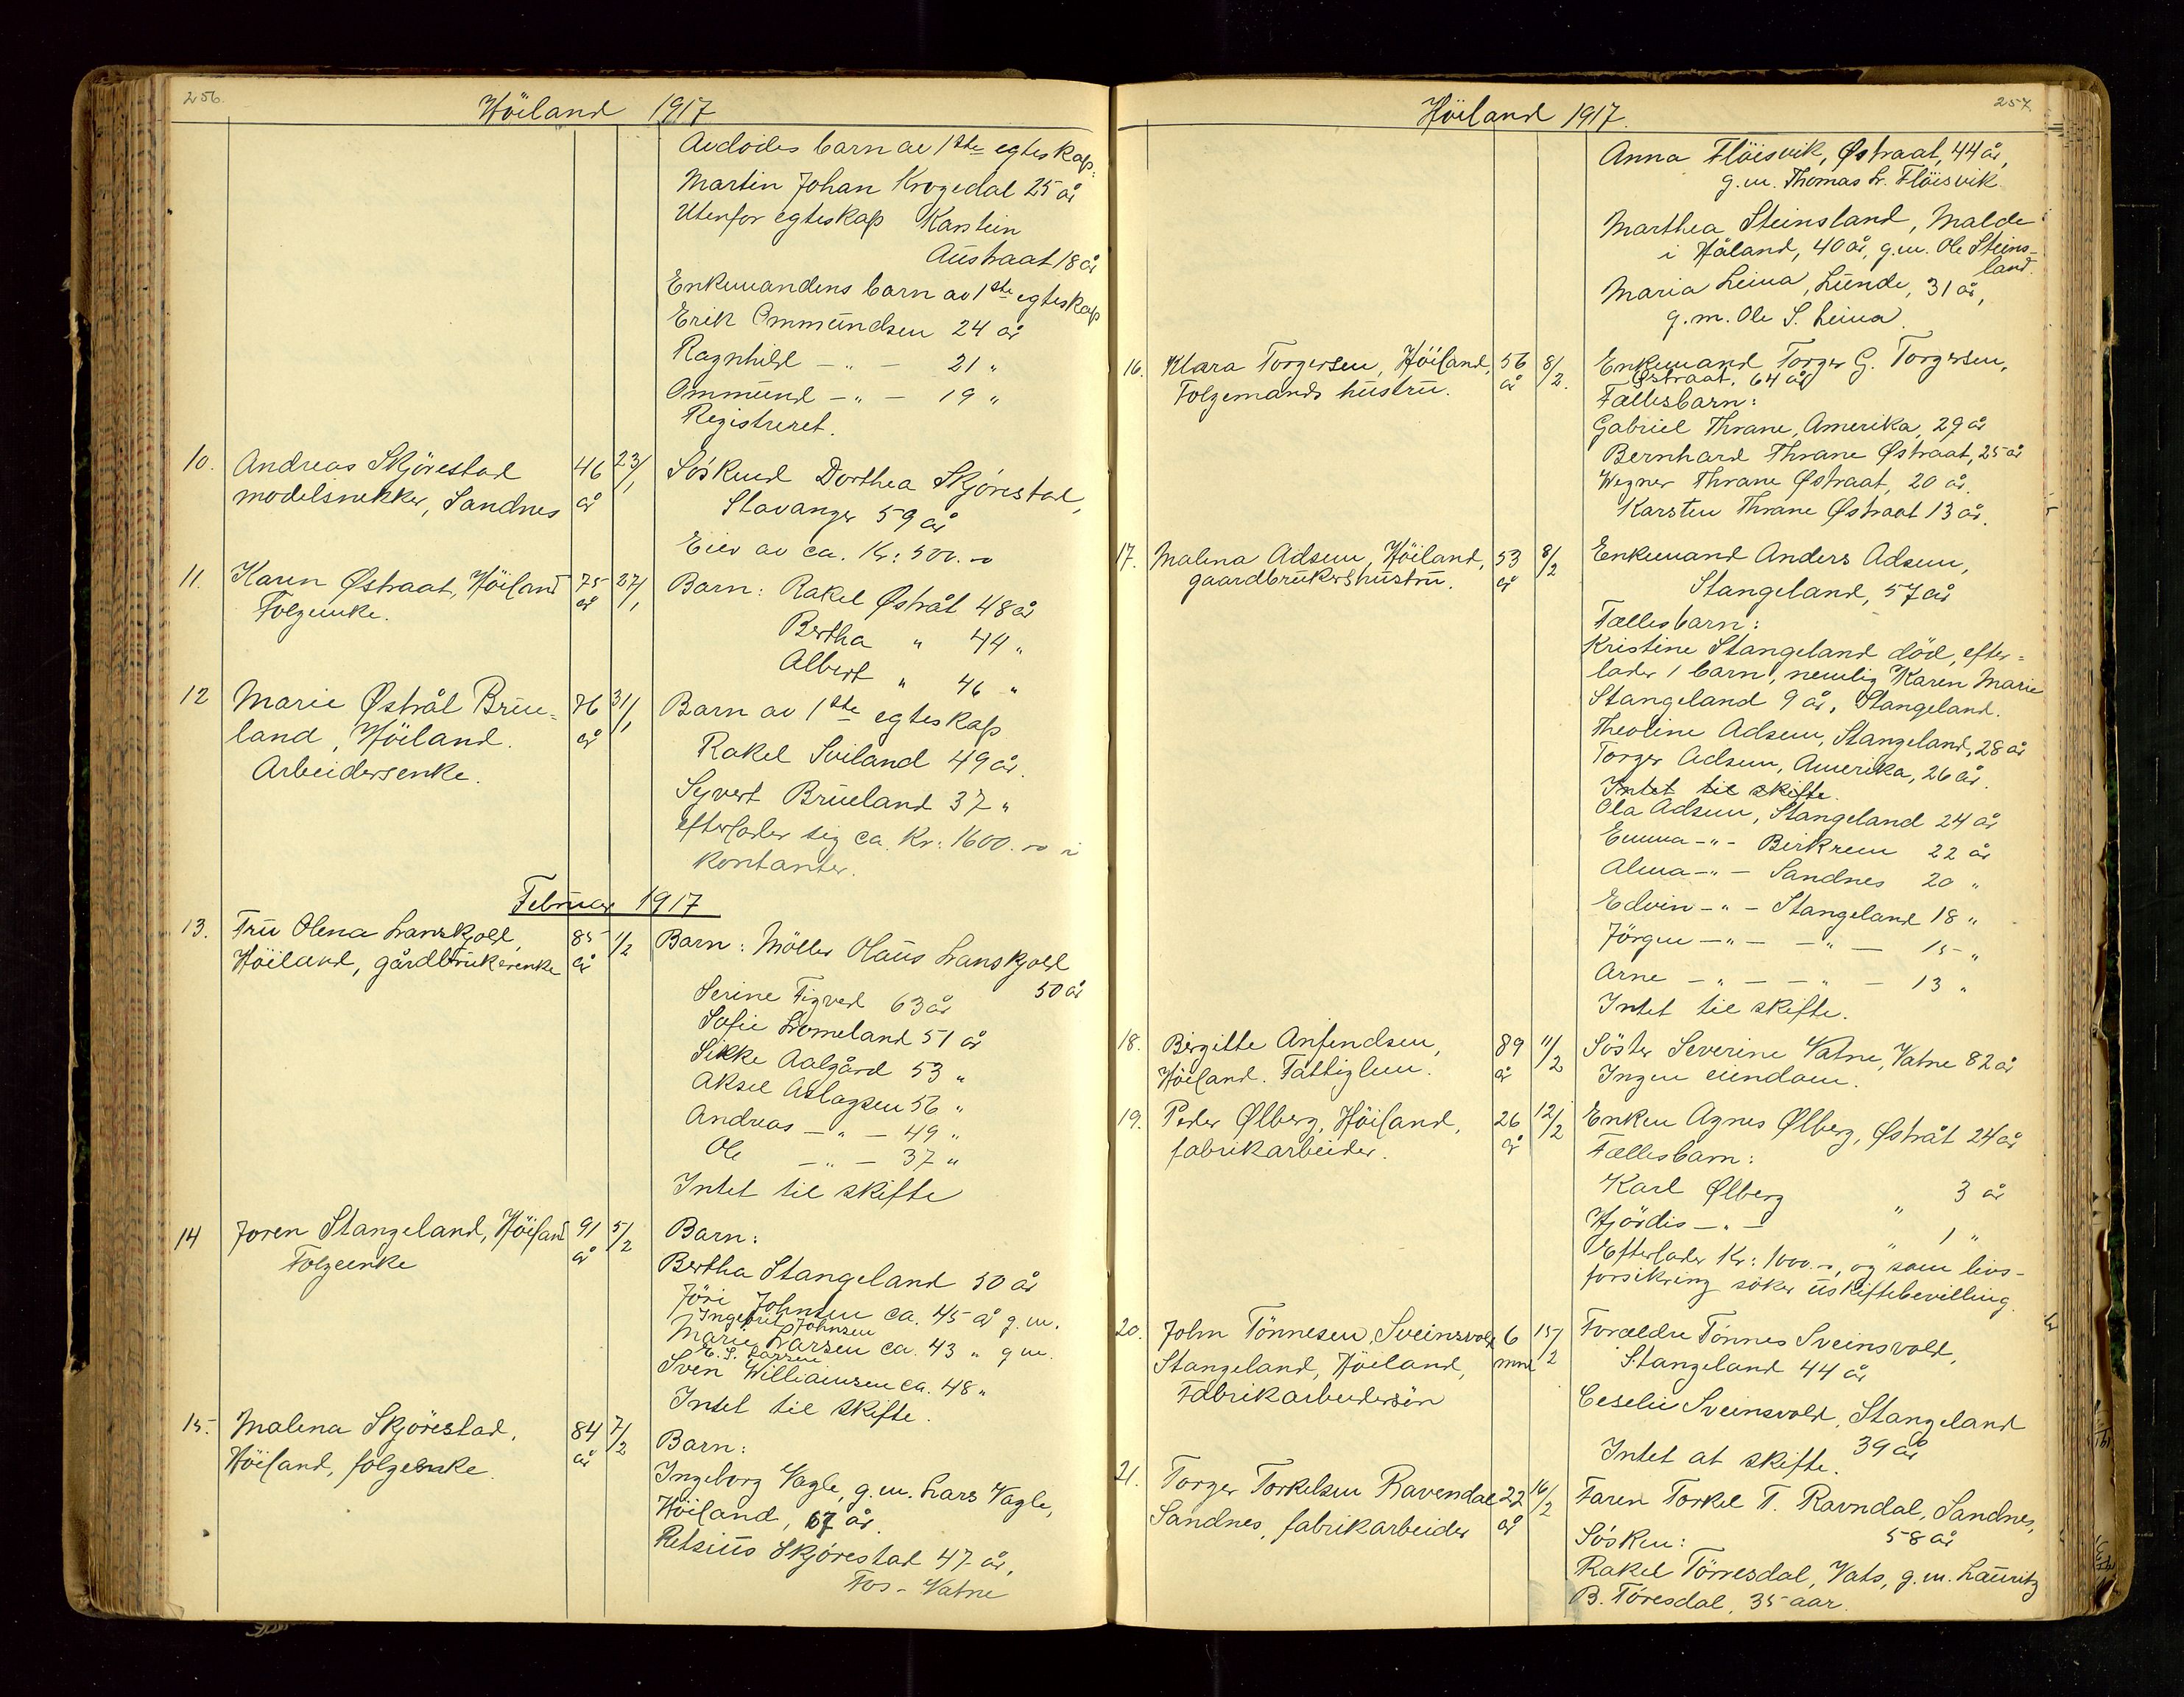 256.
Höiland 1917
Avdödes barn av 1ste egteskap:
Martin Johan Krogedal 25 år
Utenfor egteskap Karstein
Austraat 18 år
Enkemandens barn av 1ste egteskap
Erik Ommundsen 24 år
Ragnhild -"- 21 "
Ommund -"- 19 "
Registreret.
10. Andreas Skjörestad 46 23/1 Söskend Dorthea Skjörestad,
modelsnekker, Sandnes år Stavanger 59 år
Eier av ca. Kr: 500.-
11. Karen Østraat, Höiland 75 27/1 Barn: Rakel Østråt 48 år
Folgeenke. år Bertha " 44 "
Albert " 46 "
12 Marie Østrål Brue- 76 31/1 Barn av 1ste egteskap
land, Höiland. år Rakel Sviland 49 år.
Arbeidersenke. Syvert Brueland 37 "
efterlader sig ca. Kr: 1600.- i
kontanter.
Februar 1917
13. Fru Olena Lanskjold, 85 1/2 Barn: Möller Olaus Lanskjold
Höiland, gårdbrukerenke år 50 år
Serine Figved 63 år
Sofie Lomeland 51 år
Sikke Aalgård 53 "
Aksel Aslagsen 56 "
Andreas -"- 49 "
Ole -"- 37 "
Intet til skifte
14 Joren Stangeland, Höiland 91 5/2 Barn:
Folgeenke år Bertha Stangeland 50 år
Jöri Johnsen ca. 45 år g.m.
Ingebrit Johnsen
Marie Larsen ca. 43 " g.m.
E. S. Larsen
Sven Williamsen ca. 48 "
Intet til skifte.
15. Malena Skjörestad, 84 7/2 Barn:
Höiland, folgeenke. år Ingeborg Vagle, g.m. Lars Vagle,
Höiland, 67 år.
Retsius Skjörestad 47 år,
Fos-Vatne
257.
Höiland 1917.
Anna Flöisvik, Østraat, 44 år,
g.m. Thomas L. Flöisvik.
Marthea Steinsland, Malde
i Håland, 40 år, g.m. Ole Steins-
land.
Maria Leina, Lunde, 31 år,
g.m. Ole S. Leina.
16. Klara Torgersen, Höiland, 56 8/2. Enkemand Torger G. Torgersen,
Folgemands hustru. år Østraat, 64 år
Fællesbarn:
Gabriel Thrane, Amerika, 29 år
Bernhard Thrane Østraat, 25 år
Wegner Thrane Østraat, 20 år.
Karsten Thrane Østraat 13 år.
17. Malena Adsem, Höiland, 53 8/2 Enkemand Anders Adsem,
gaardbrukershustru. år Stangeland, 57 år
Fællesbarn:
Kristine Stangeland död, efter-
lader 1 barn, nemlig Karen Marie
Stangeland 9 år, Stangeland.
Theoline Adsem, Stangeland, 28 år
Torger Adsem, Amerika, 26 år.
Intet til skifte.
Ola Adsem, Stangeland 24 år
Emma -"- Birkrem 22 år
Alma -"- Sandnes 20 "
Edvin -"- Stangeland 18 "
Jörgen -"- -"- 15 "
Arne -"- -"- 13 "
Intet til skifte.
18. Birgitte Anfendsen, 89 11/2 Söster Severine Vatne, Vatne 82 år
Höiland. Fattiglem. år Ingen eiendom.
19. Peder Ølberg, Höiland, 26 12/2 Enken Agnes Ølberg, Østråt 24 år
fabrikarbeider. år Fællesbarn:
Karl Ølberg " 3 år
Hjördis -"- " 1 "
Efterlader Kr: 1000.-, og som livs-
forsikring söker uskiftebevilling.
20. John Tönnesen Sveinsvold 6 15/2 Forældre Tönnes Sveinsvold,
Stangeland, Höiland, mnd Stangeland 44 år
Fabrikarbeidersön Ceselie Sveinsvold, Stangeland
39 år
Intet at skifte.
21. Torger Torkelsen Ravendal 22 16/2 Faren Torkel T. Ravndal, Sandnes,
Sandnes, fabrikarbeider år 58 år
Sösken:
Rakel Törresdal, Vats, g.m. Lauritz
B. Töresdal, 35 aar.